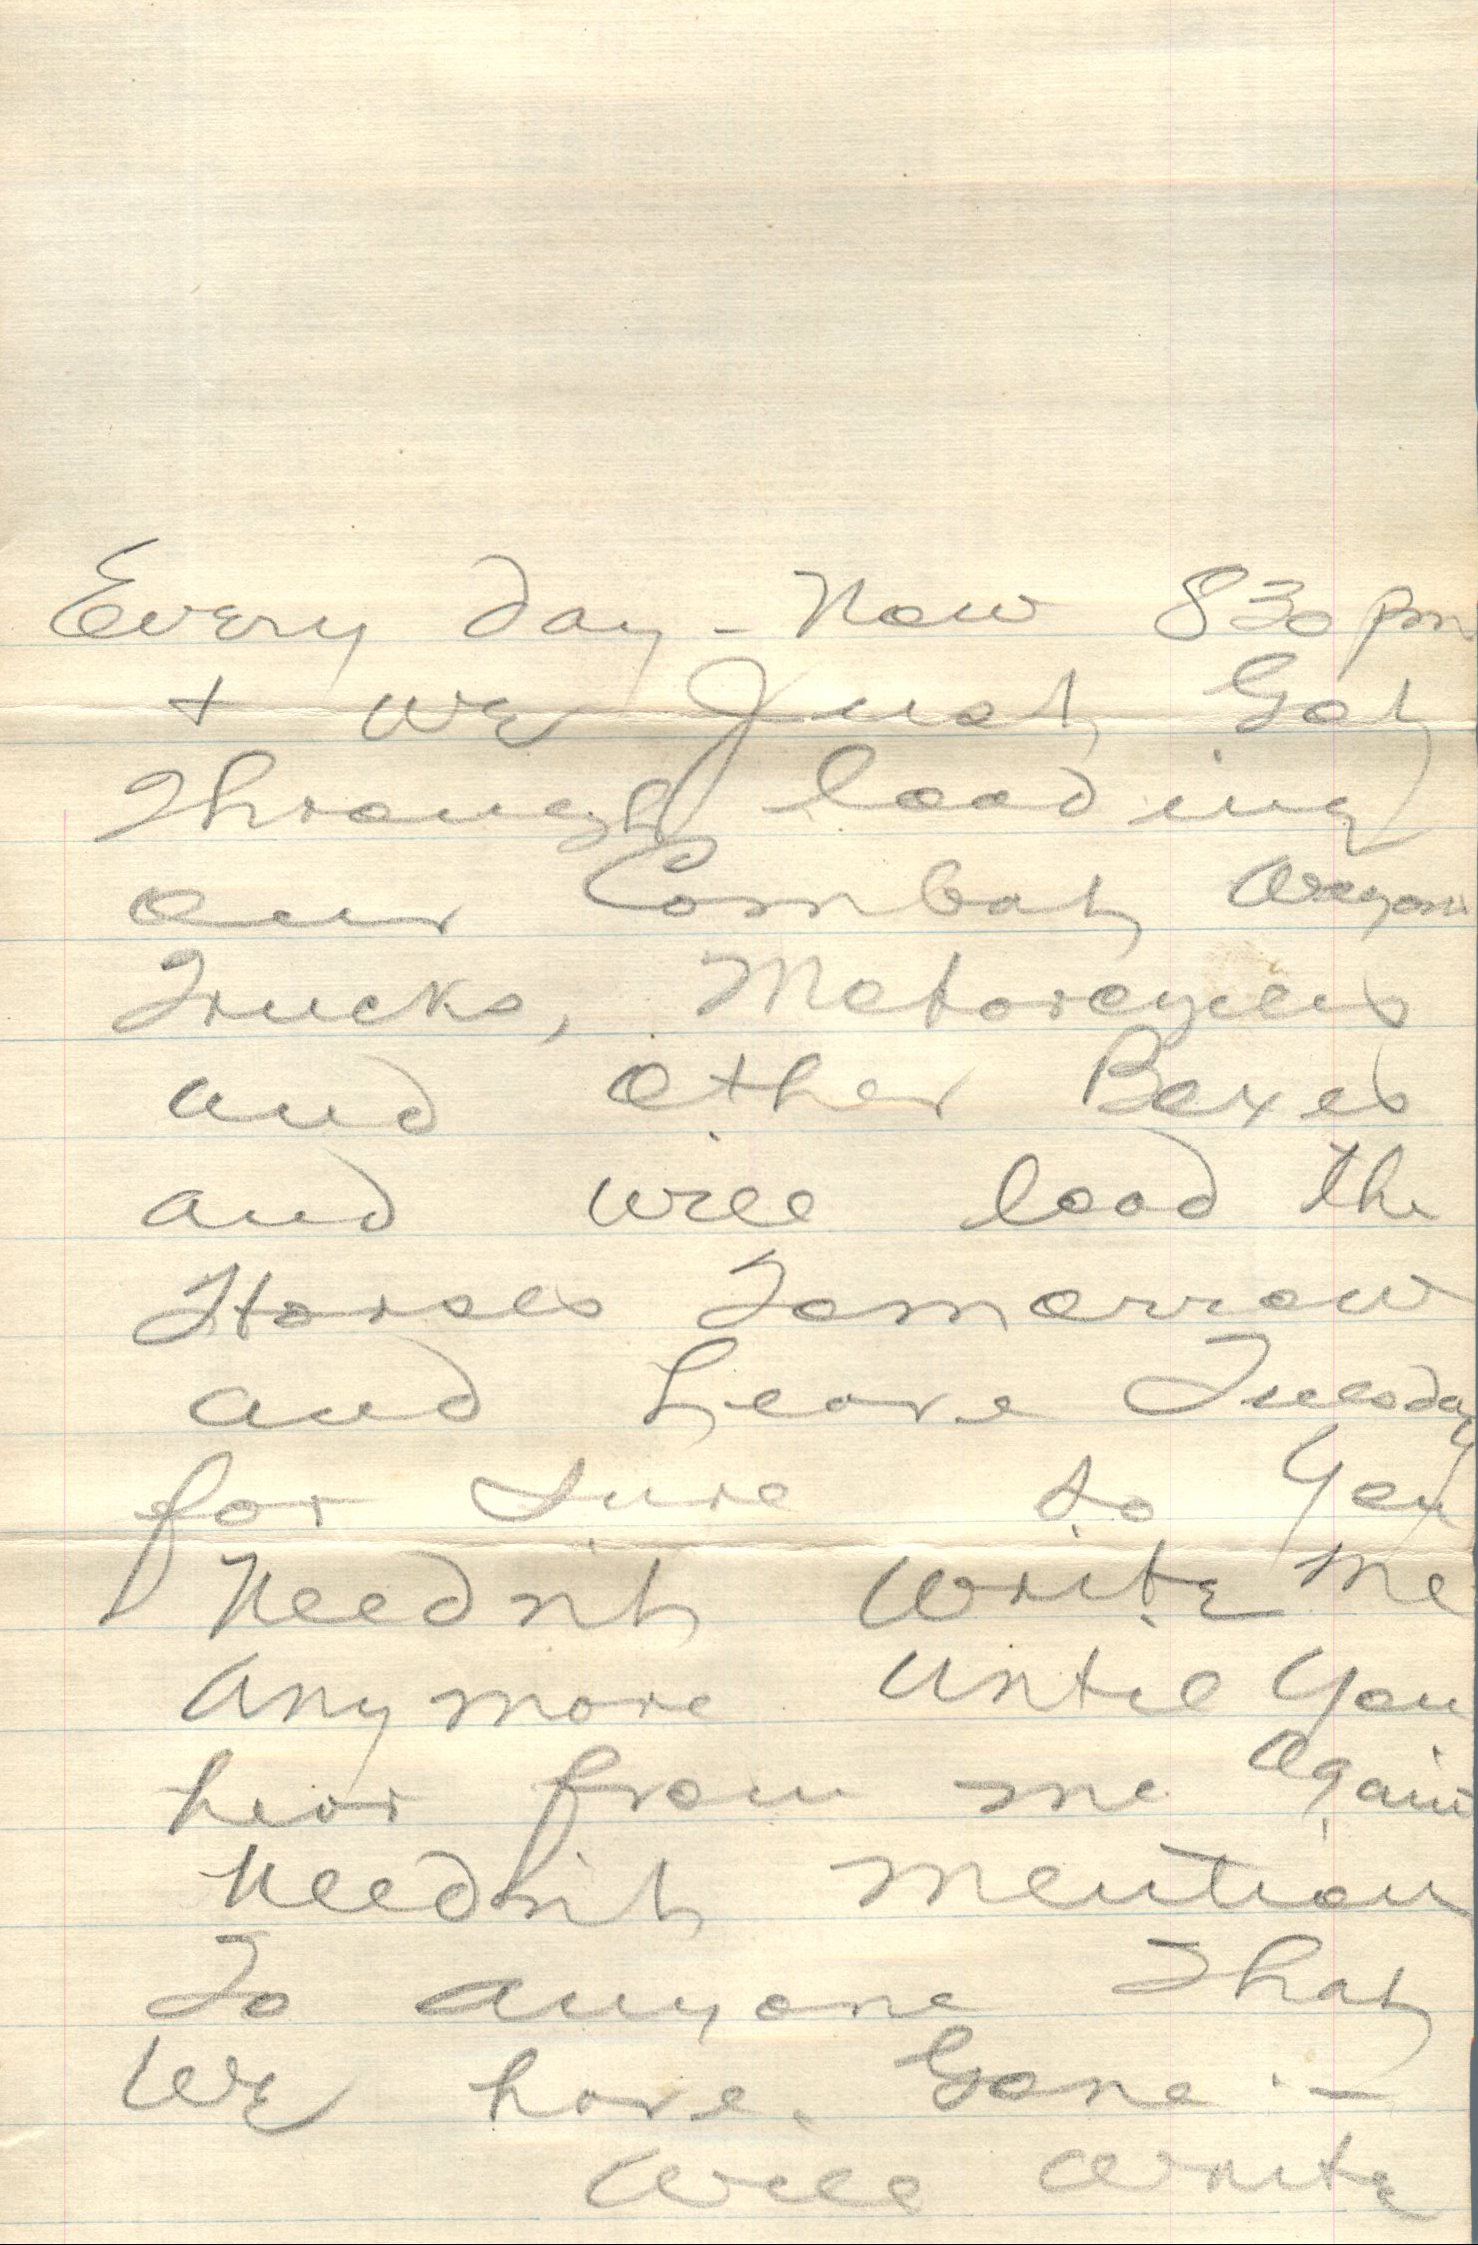 Every day - Now 830 pm
+ we Just Got
Through loading
our Combat Wagons
Trucks, Motorcycles
and other Boxes
and will load the
Horses Tomorrow
and Leave Tuesday
for Sure so You
Needn't write me
Anymore until You
hear from me again
Needn't mention
To anyone That
We have Gone -
Will Write